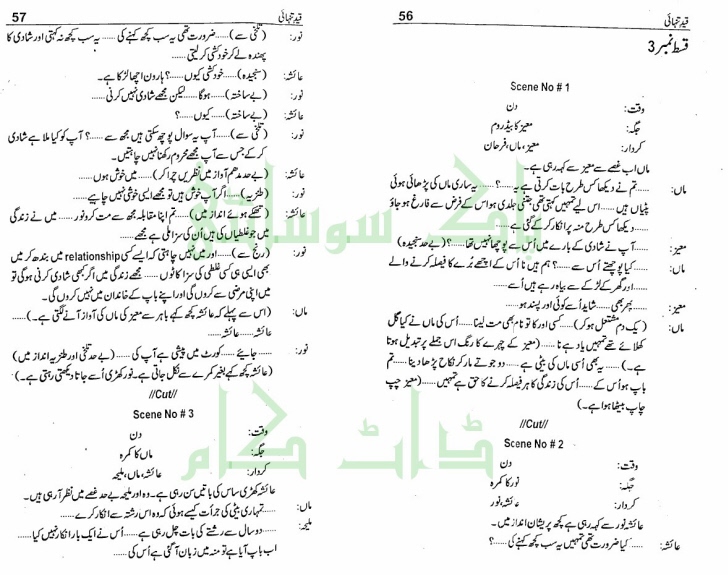 56
قیدِ تنہائی
قسط نمبر 3
Scene No # 1
وقت: دن
جگہ: معیز کا بیڈروم
کردار: معیز، ماں، فرحان
ماں اب غصے سے معیز سے کہہ رہی ہے۔
ماں: ......تم نے دیکھا کس طرح بات کرتی ہے یہ......؟ ......یہ ساری ماں کی پڑھائی ہوئی
پٹیاں ہیں ......اس لیے تمہیں کہتی تھی جتنی جلدی ہو اس کے فرض سے فارغ ہو جاؤ
......دیکھا کس طرح منہ پر انکار کر کے گئی ہے......
معیز: ......آپ نے شادی کے بارے میں اُس سے پوچھا نہیں تھا......؟ (بے حد سنجیدہ)
ماں: ......کیا پوچھتے اُس سے......؟ ہم ہیں نا اُس کے اچھے بُرے کا فیصلہ کرنے والے
......اور گھر کے لڑکے سے بیاہ رہے ہیں اُسے......
معیز: ......پھر بھی ......شاید اُسے کوئی اور پسند ہو......
ماں: (یک دم مشتعل ہو کر) ......کسی اور کا تو نام بھی مت لینا ......اُس کی ماں نے کیا گل
کھلائے تھے تمہیں یاد ہے نا ......(معیز کے چہرے کا رنگ اس جملے پر تبدیل ہوتا
ہے۔) ......یہ بھی اُسی ماں کی بیٹی ہے ......دو جوتے مار کر نکاح پڑھا دینا ......تم
باپ ہو اُس کے ......اُس کی زندگی کا ہر فیصلہ کرنے کا حق ہے تمہیں ......(معیز چپ
چاپ بیٹھا ہوا ہے۔)
//Cut//
Scene No # 2
وقت: دن
جگہ: نور کا کمرہ
کردار: عائشہ، نور
عائشہ نور سے کہہ رہی ہے کچھ پریشان انداز میں۔
عائشہ: ......کیا ضرورت تھی تمہیں یہ سب کچھ کہنے کی......؟
57
قیدِ تنہائی
نور: (تلخی سے) ......ضرورت تھی یہ سب کچھ کہنے کی ......یہ سب کچھ نہ کہتی اور شادی کا
پھندہ لے کر خودکشی کر لیتی......
عائشہ: (سنجیدہ) ......خودکشی کیوں......؟ ہارون اچھا لڑکا ہے۔
نور: (بے ساختہ) ......ہو گا ......لیکن مجھے شادی نہیں کرنی......
عائشہ: (بے ساختہ) ......کیوں......؟
نور: (تلخی سے) ......آپ یہ سوال پوچھ سکتی ہیں مجھ سے......؟ آپ کو کیا ملا ہے شادی
کر کے جس سے آپ مجھے محروم رکھنا نہیں چاہتیں۔
عائشہ: (بے حد مدھم آواز میں نظریں چرا کر) ......میں خوش ہوں......
نور: (طنزیہ) ......اگر آپ خوش ہیں تو مجھے ایسی خوشی نہیں چاہیے......
عائشہ: (تھکے ہوئے انداز میں) ......تم اپنا مقابلہ مجھ سے مت کرو نور ......میں نے زندگی
میں جو غلطیاں کی ہیں اُن کی سزا ملی ہے مجھے......
نور: (رنج سے) ......اور میں نہیں چاہتی کہ ایسے کسی relationship میں بندھ کر میں
بھی ایسی ہی کسی غلطی کی سزا کاٹوں ......مجھے زندگی میں اگر کبھی شادی کرنی ہو گی تو
میں اپنی مرضی سے کروں گی اور اپنے باپ کے خاندان میں نہیں کروں گی۔
ماں: (اس سے پہلے کہ عائشہ کچھ کہے باہر سے معیز کی ماں کی آواز آنے لگتی ہے۔)......
عائشہ ......عائشہ......
نور: ......جایئے ......کورٹ میں پیشی ہے آپ کی ......(بے حد تلخی اور طنزیہ انداز میں)
(عائشہ کچھ کہے بغیر کمرے سے نکل جاتی ہے۔ نور کھڑی اُسے جاتا دیکھتی رہتی ہے۔)
//Cut//
Scene No # 3
وقت: دن
جگہ: ماں کا کمرہ
کردار: عائشہ، ماں، ملیحہ
عائشہ کھڑی ساس کی باتیں سن رہی ہے۔ وہ اور ملیحہ بے حد غصے میں نظر آ رہی ہیں۔
ماں: ......تمہاری بیٹی کی جرأت کیسے ہوئی کہ وہ اس رشتہ سے انکار کرے......
ملیحہ: ......دو سال سے رشتے کی بات چل رہی ہے ......اُس نے ایک بار انکار نہیں کیا......
اب باپ آیا ہے تو منہ میں زبان آ گئی ہے اُس کی......
پاک سوسائٹی
ڈاٹ کام